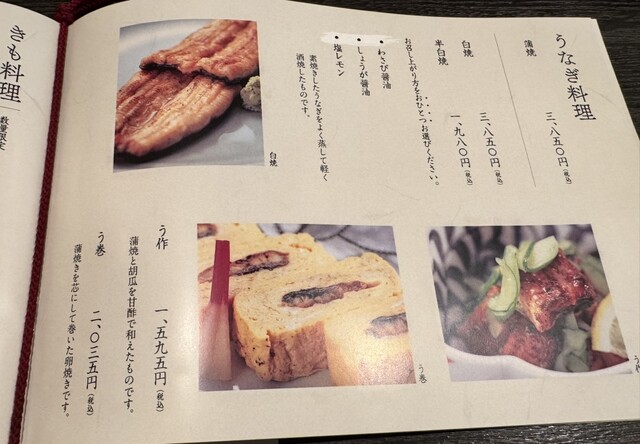 うなぎ料理
蒲焼 三、八五〇円（税込）
白焼 三、八五〇円（税込）
半白焼 一、九八〇円（税込）
お召し上がり方をおひとつお選びください。
• わさび醤油
• しょうが醤油
• 塩レモン
素焼きしたうなぎをよく蒸して軽く
酒焼したものです。
白焼
う作 一、五九五円（税込）
蒲焼と胡瓜を甘酢で和えたものです。
う巻 二、〇三五円（税込）
蒲焼きを芯にして巻いた卵焼きです。
う巻
きも料理 数量限定